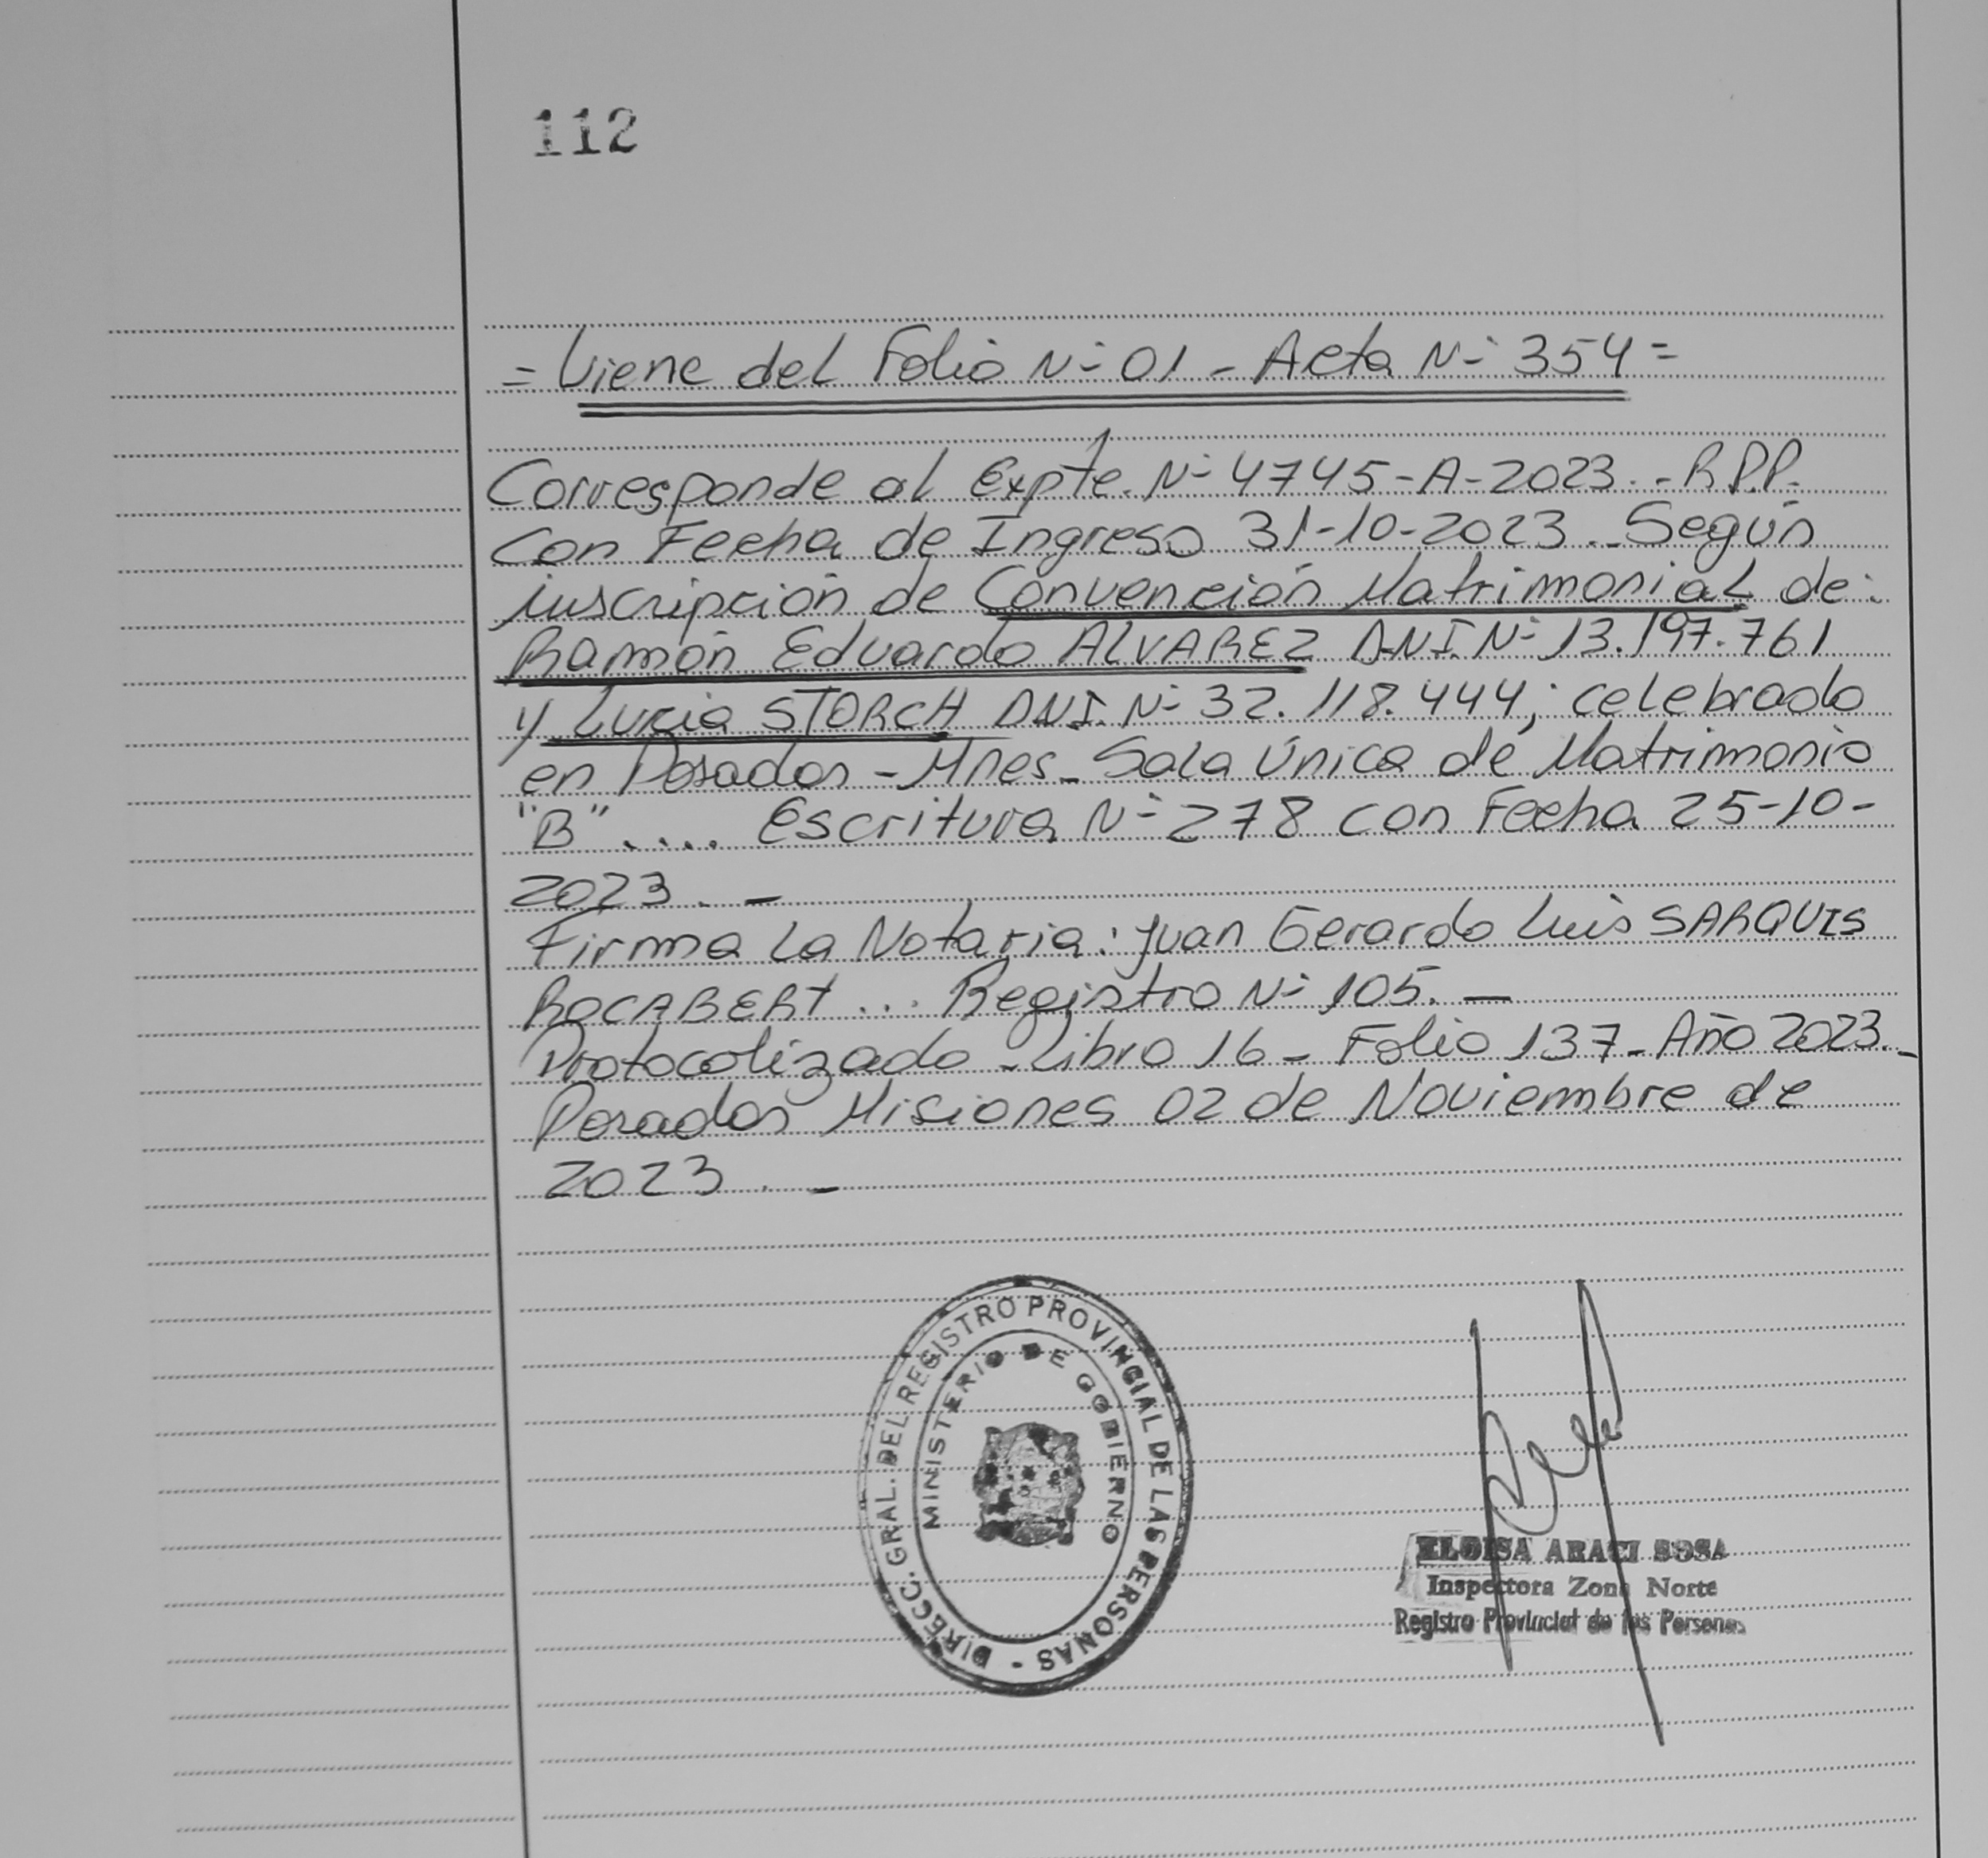 112
= Viene del Folio N- 01 - Acta N- 354 =
Corresponde al Expte. N- 4745-A-2023.-R.P.P.
Con Fecha de Ingreso 31-10-2023.. Según
inscripción de Convención Matrimonial de:
Ramón Eduardo ALVAREZ D.N.I. N- 13.197.761
y Lucia STORCH D.N.I. N- 32.118.444; celebrado
en Posadas - Mnes - Sala Única de Matrimonio
"B" .... Escritura N- 278 con Fecha 25-10-
2023. -
Firma La Notaria: Juan Gerardo Luis SARQUIS
ROCABERT ... Registro N- 105. -
Protocolizado - Libro 16 - Folio 137 - Año 2023. -
Posadas Misiones 02 de Noviembre de
2023 . -
DIRECC. GRAL. DEL REGISTRO PROVINCIAL DE LAS PERSONAS -
MINISTERIO DE GOBIERNO
ELOISA ARACI SOSA
Inspectora Zona Norte
Registro Provincial de las Personas